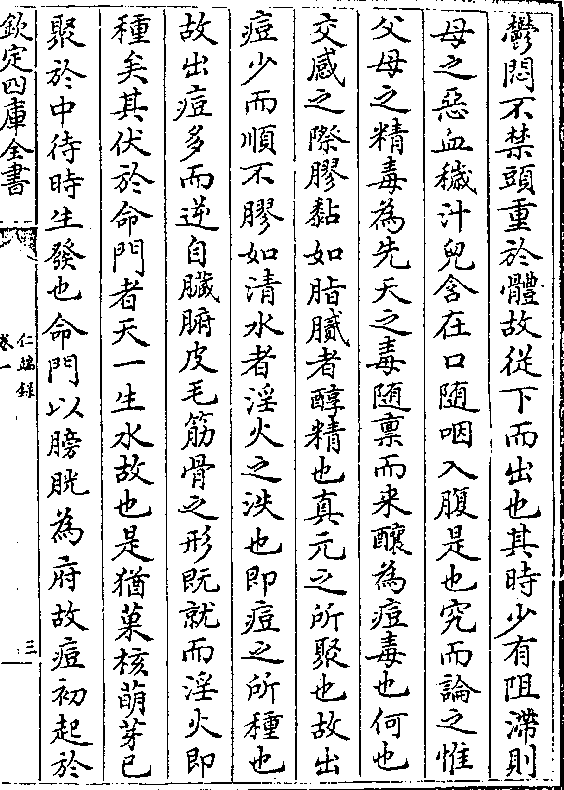 鬱悶不禁頭重於體故從下而出也其時少有阻滯則
母之惡血穢汁兒含在口随咽入腹是也究而論之惟
父母之精毒為先天之毒随禀而来釀為痘毒也何也
交感之際膠黏如脂膩者醇精也真元之所聚也故出
痘少而順不膠如清水者淫火之泆也即痘之所種也
故出痘多而逆自臟腑皮毛筋骨之形既就而淫火即
種矣其伏於命門者天一生水故也是猶菓核萌芽已
聚於中待時生發也命門以膀胱為府故痘初起於
欽定四庫全書
仁端録
卷一
三